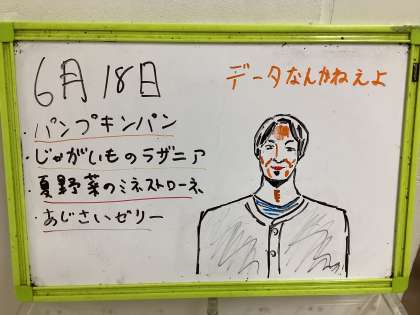 6月18日
データなんかねぇよ
パンプキンパン
・じゃがいものラザニア
・夏野菜のミネストローネ
・あじさいゼリー